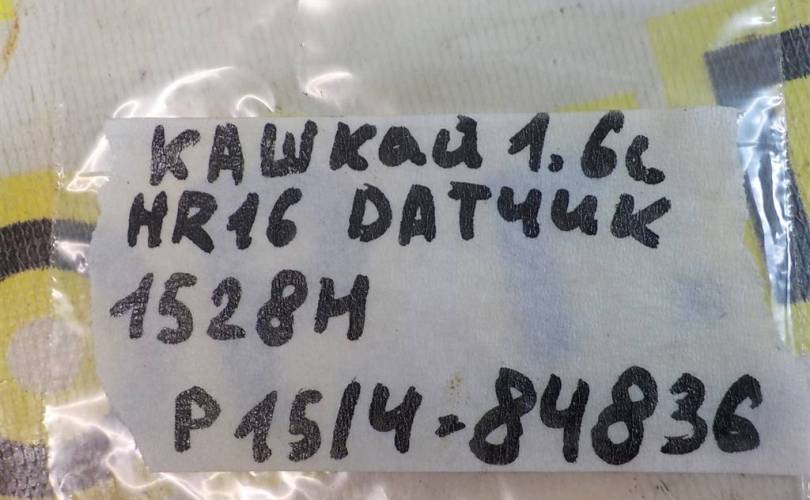 КАШкай 1.6с
HR16 DATчик
1528H
P15/4-84836